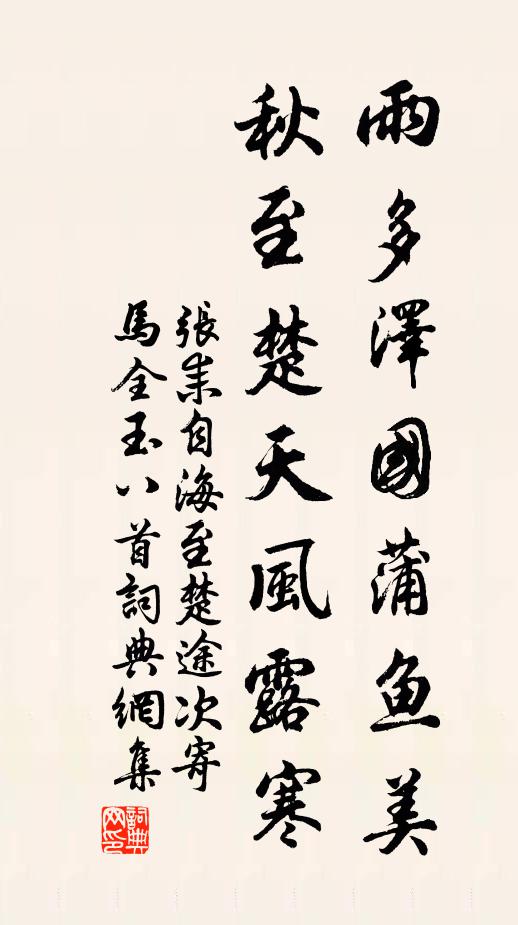 雨多澤國蒲魚美
秋至楚天風露寒
張耒自海至楚途次寄
馬全玉八首詞典網集
詞典
网印